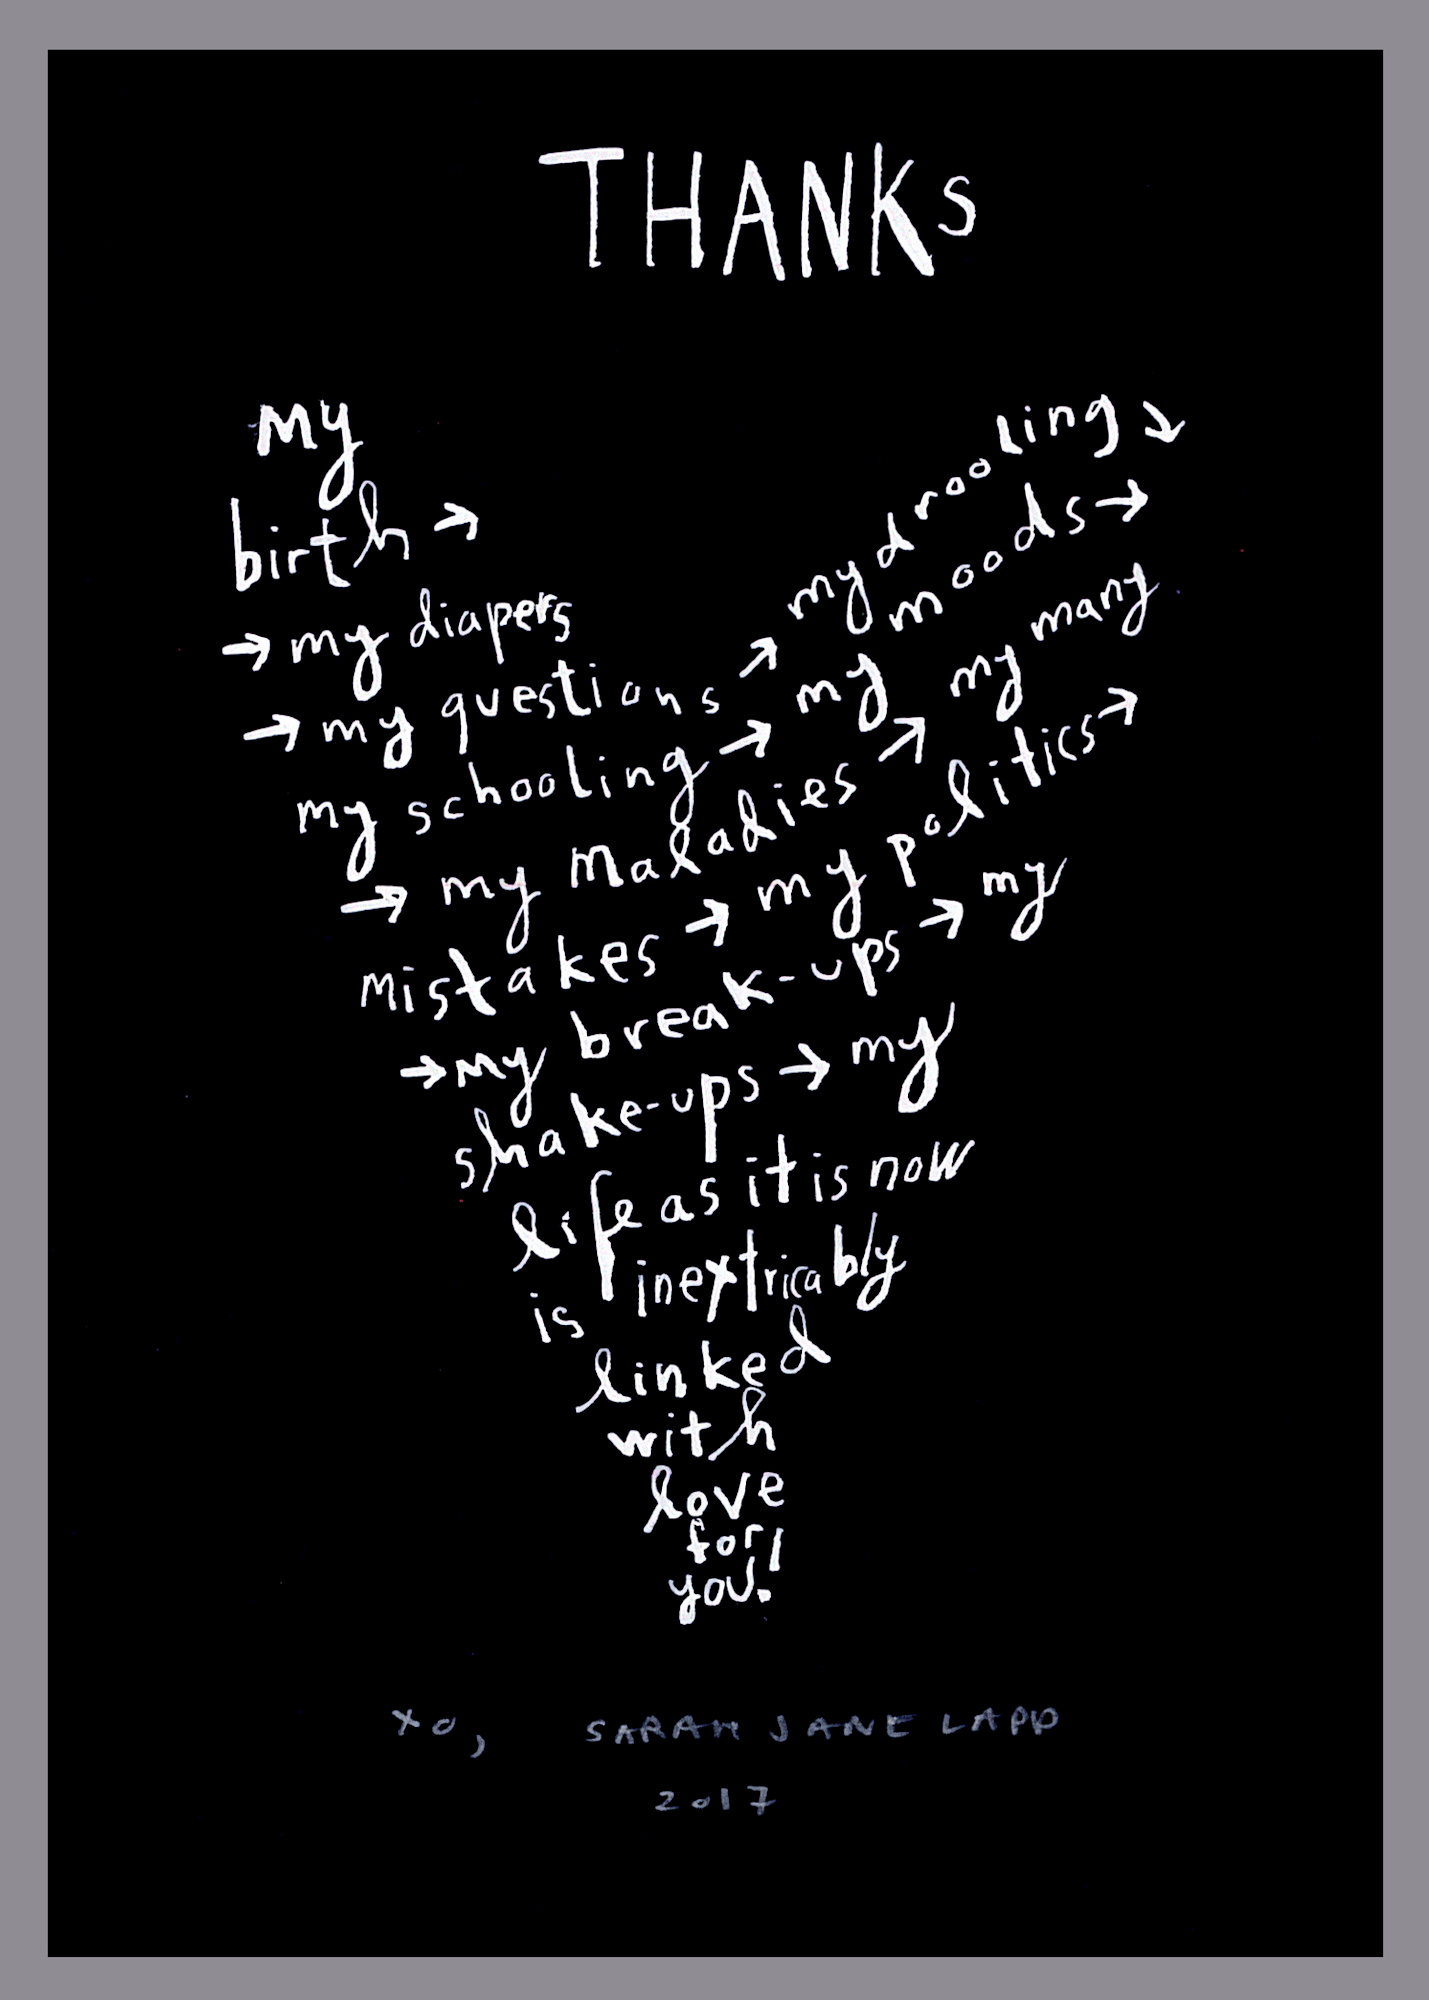 THANKS
My
birth →
→ my diapers
→ my questions ↗ my drooling ↘
my schooling → my moods →
→ my maladies ↗ my many
mistakes → my politics →
→ my break-ups → my
shake-ups → my
life as it is now
is inextricably
linked
with
love
for
you!
xo, SARAH JANE LAPP
2017